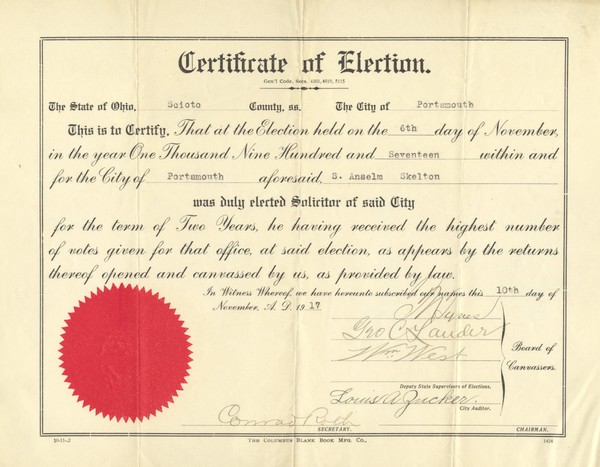 Certificate of Election.
Gen'l Code, Secs.
The State of Ohio, Scioto County, ss. The City of Portsmouth
This is to Certify, That at the Election held on the 6th day of November,
in the year One Thousand Nine Hundred and Seventeen within and
for the City of Portsmouth aforesaid, S. Anselm Skelton
was duly elected Solicitor of said City
for the term of Two Years, he having received the highest number
of votes given for that office, at said election, as appears by the returns
thereof opened and canvassed by us, as provided by law.
In Witness Whereof, we have hereunto subscribed our names this 10th day of
November, A. D. 1917
Geo C. Lauder
Wm West
Board of
Canvassers.
Deputy State Supervisors of Elections.
Louis A. Zucker.
City Auditor.
Conrad Roth
SECRETARY.
CHAIRMAN.
THE COLUMBUS BLANK BOOK MFG. CO.,